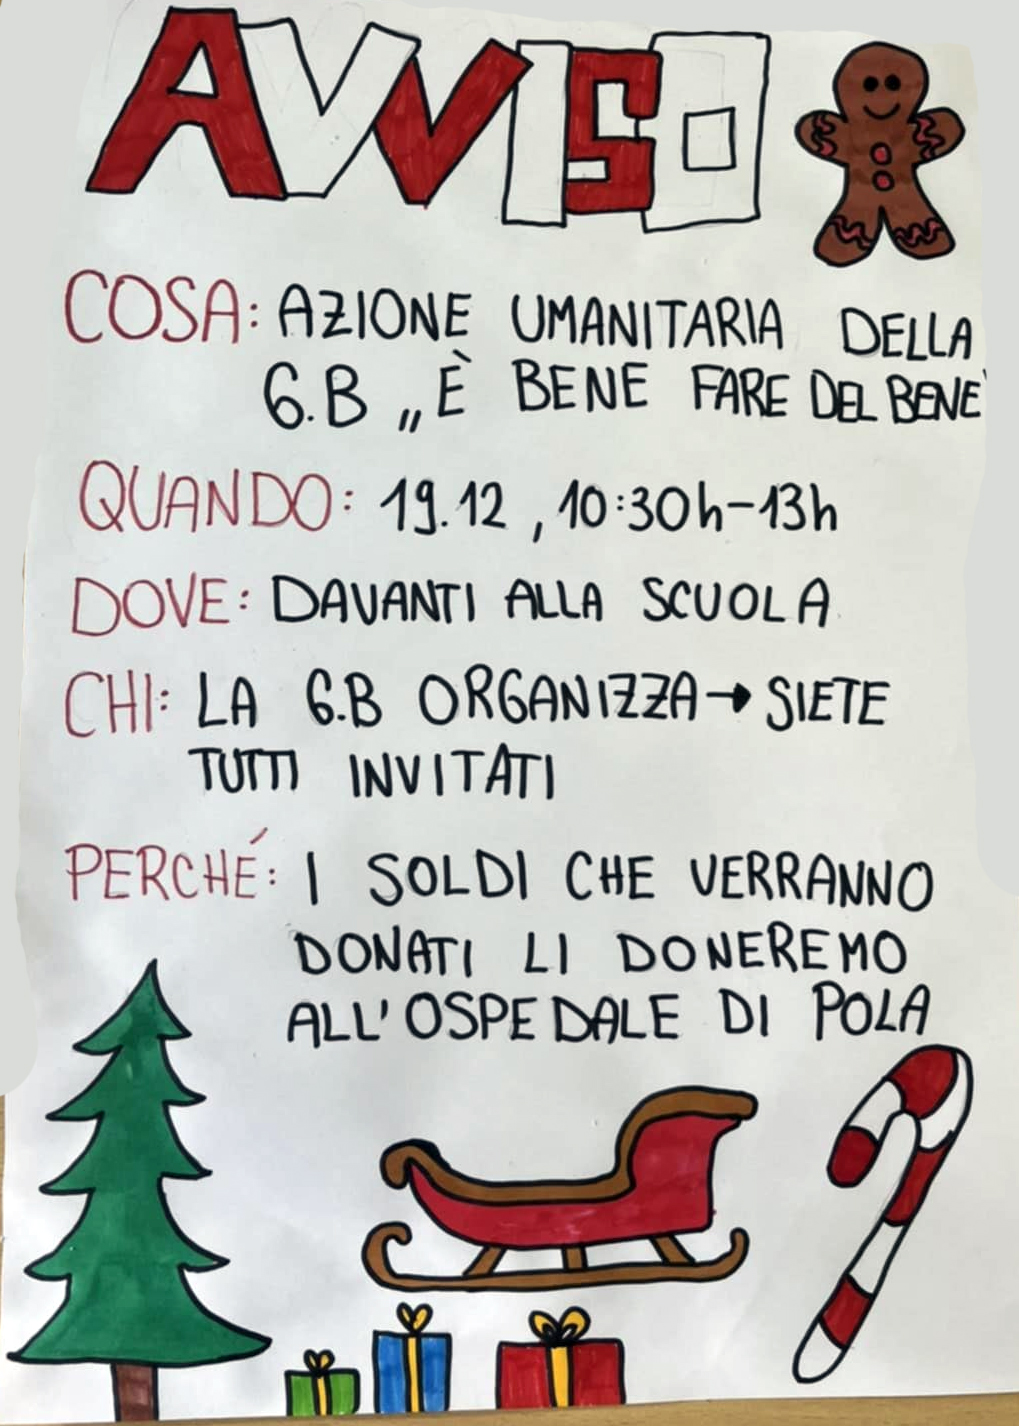 AVVISO
COSA: AZIONE UMANITARIA DELLA
6.B „È BENE FARE DEL BENE"
QUANDO: 19.12, 10:30h-13h
DOVE: DAVANTI ALLA SCUOLA
CHI: LA 6.B ORGANIZZA→SIETE
TUTTI INVITATI
PERCHÉ: I SOLDI CHE VERRANNO
DONATI LI DONEREMO
ALL'OSPEDALE DI POLA